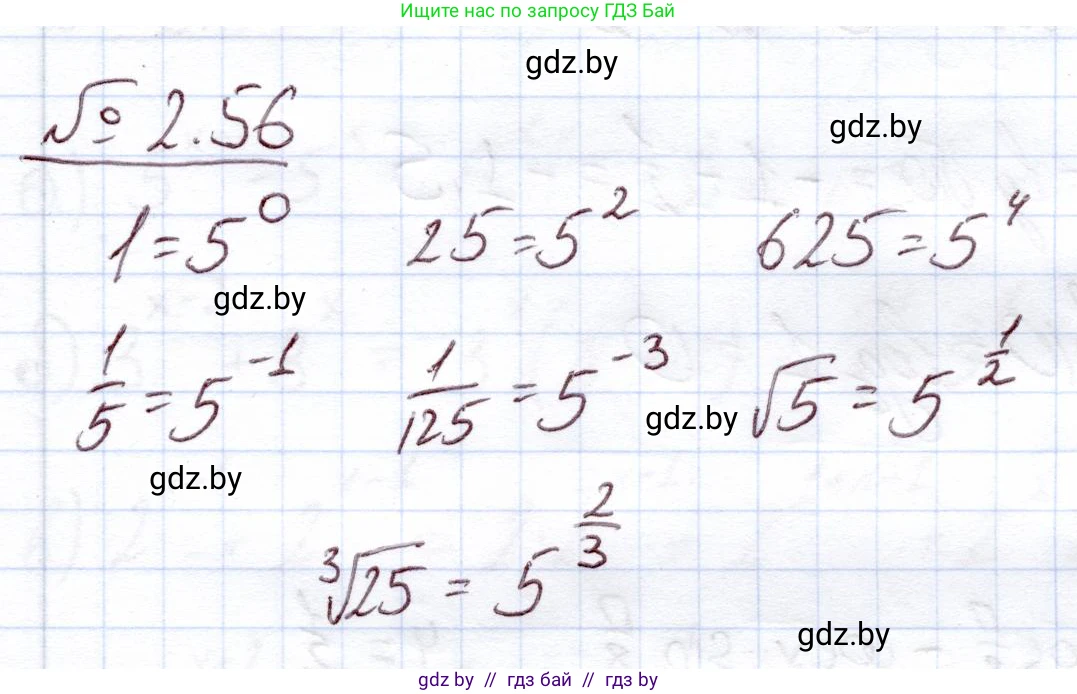 Ищите нас по запросу ГДЗ Бай
gdz.by
№ 2.56
gdz.by
1 = 5^0 25 = 5^2 625 = 5^4
gdz.by
1/5 = 5^-1 1/125 = 5^-3 √5 = 5^1/2
gdz.by
gdz.by
∛25 = 5^2/3
gdz.by
gdz by // гдз бай // гдз by